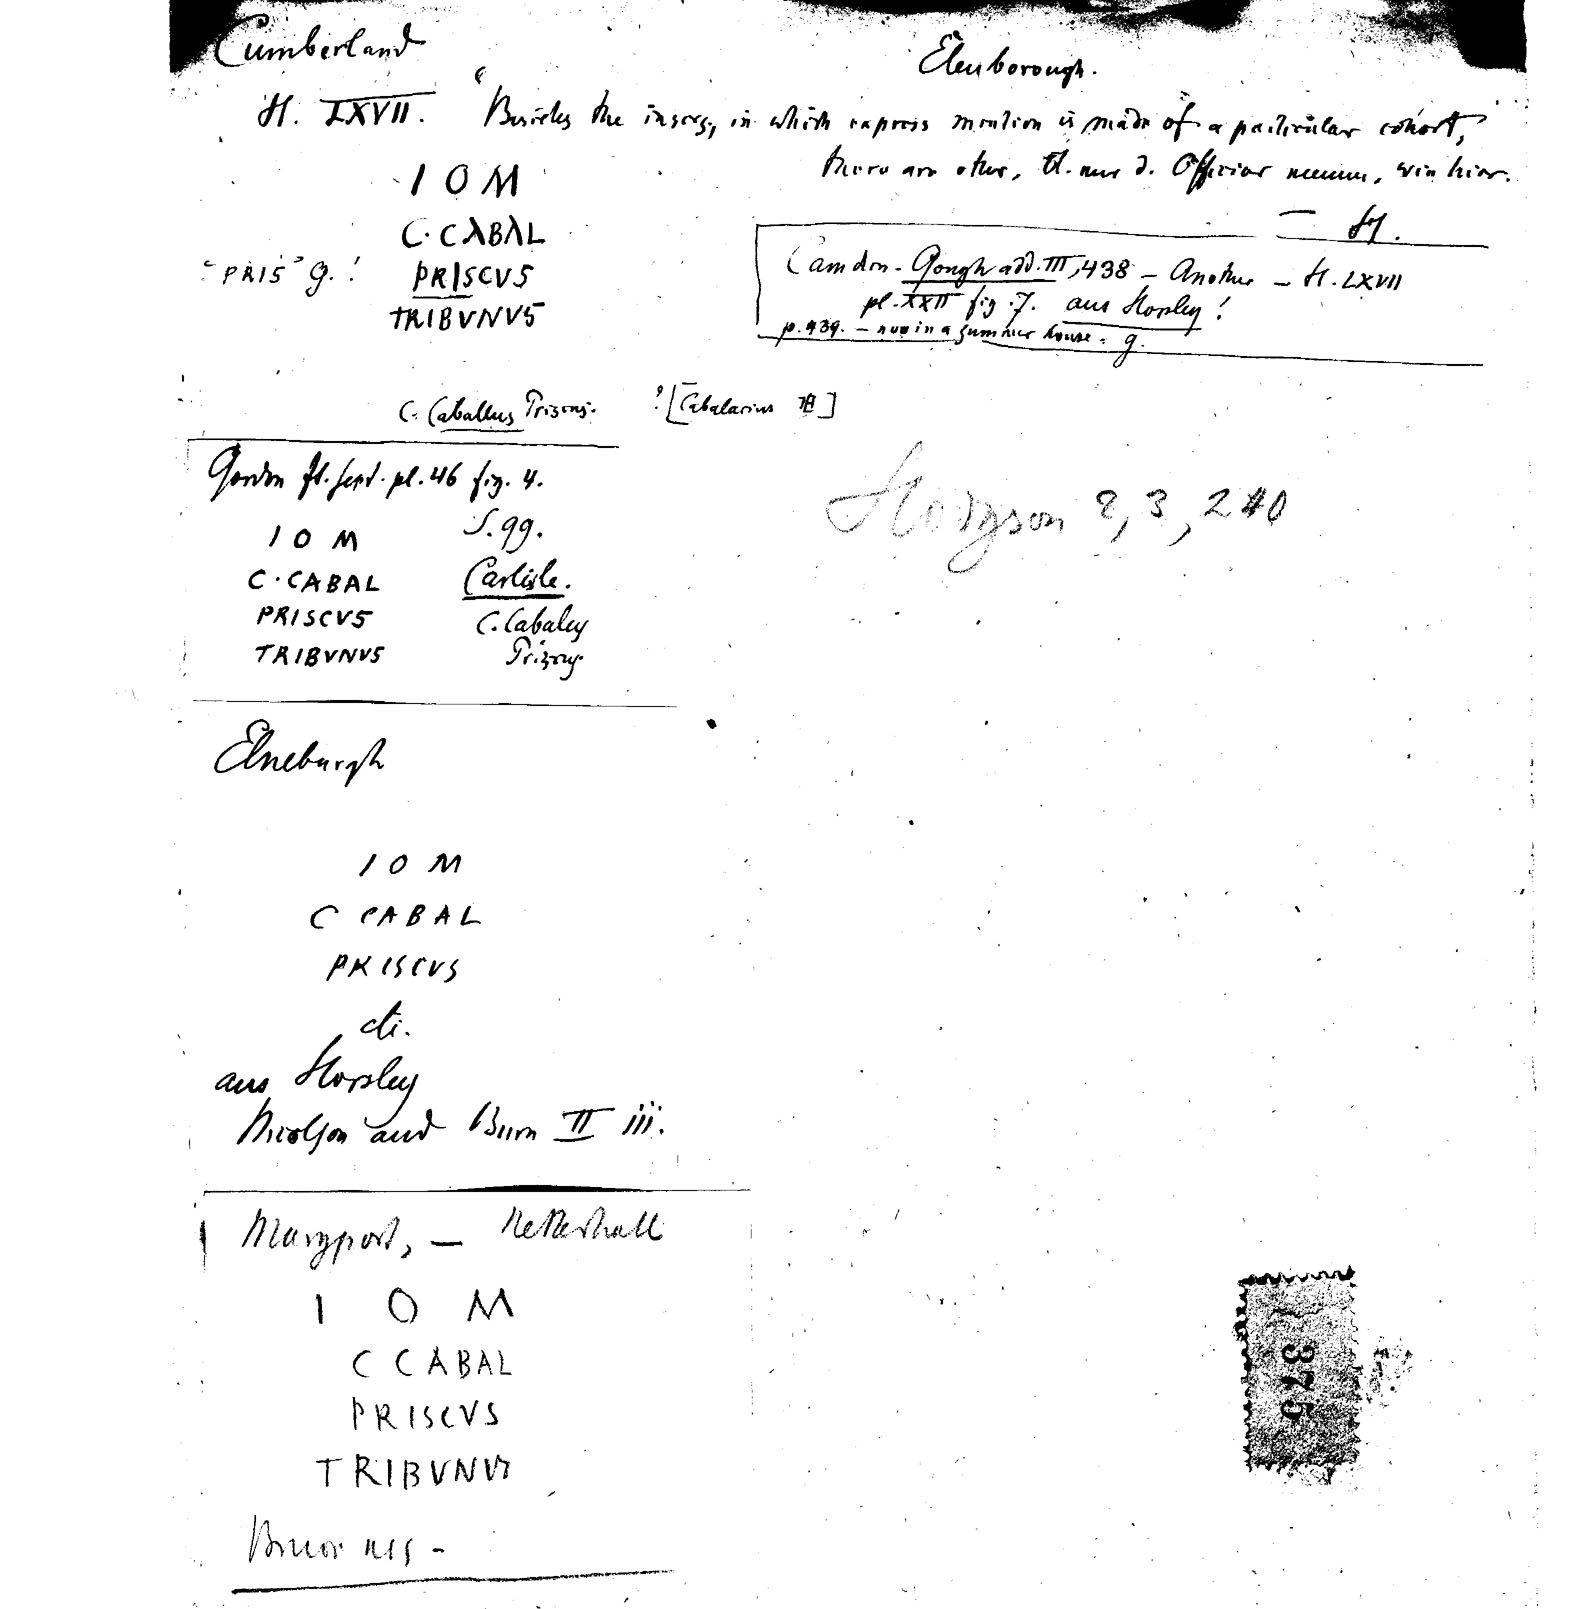 Cumberland
Elenborough.
H. LXVII. "Besides the inscrs, in which express mention is made of a particular cohort,
there are other, d. nur d. Officier nennen, wie hier.
H.
I O M
C. CABAL
"PRIS" G.! PRISCVS
TRIBVNVS
Camden-Gough add. III, 438 - Another - H. LXVII
pl. XXII fig. 7. aus Horsley!
p. 439. - now in a summer house. G.
C. Caballus Priscus. ? [Cabalarius]
Gordon It. Sept. pl. 46 fig. 4.
S. 99.
I O M
C. CABAL Carlisle.
PRISCVS C. Cabalus
TRIBVNVS Priscus
Hodgson 2, 3, 240
Elneburgh
I O M
C CABAL
PRISCVS
etc.
aus Horsley
Nicolson and Burn II iii.
Maryport, - Netherhall
I O M
C CABAL
PRISCVS
TRIBVNVS
Bruce
375